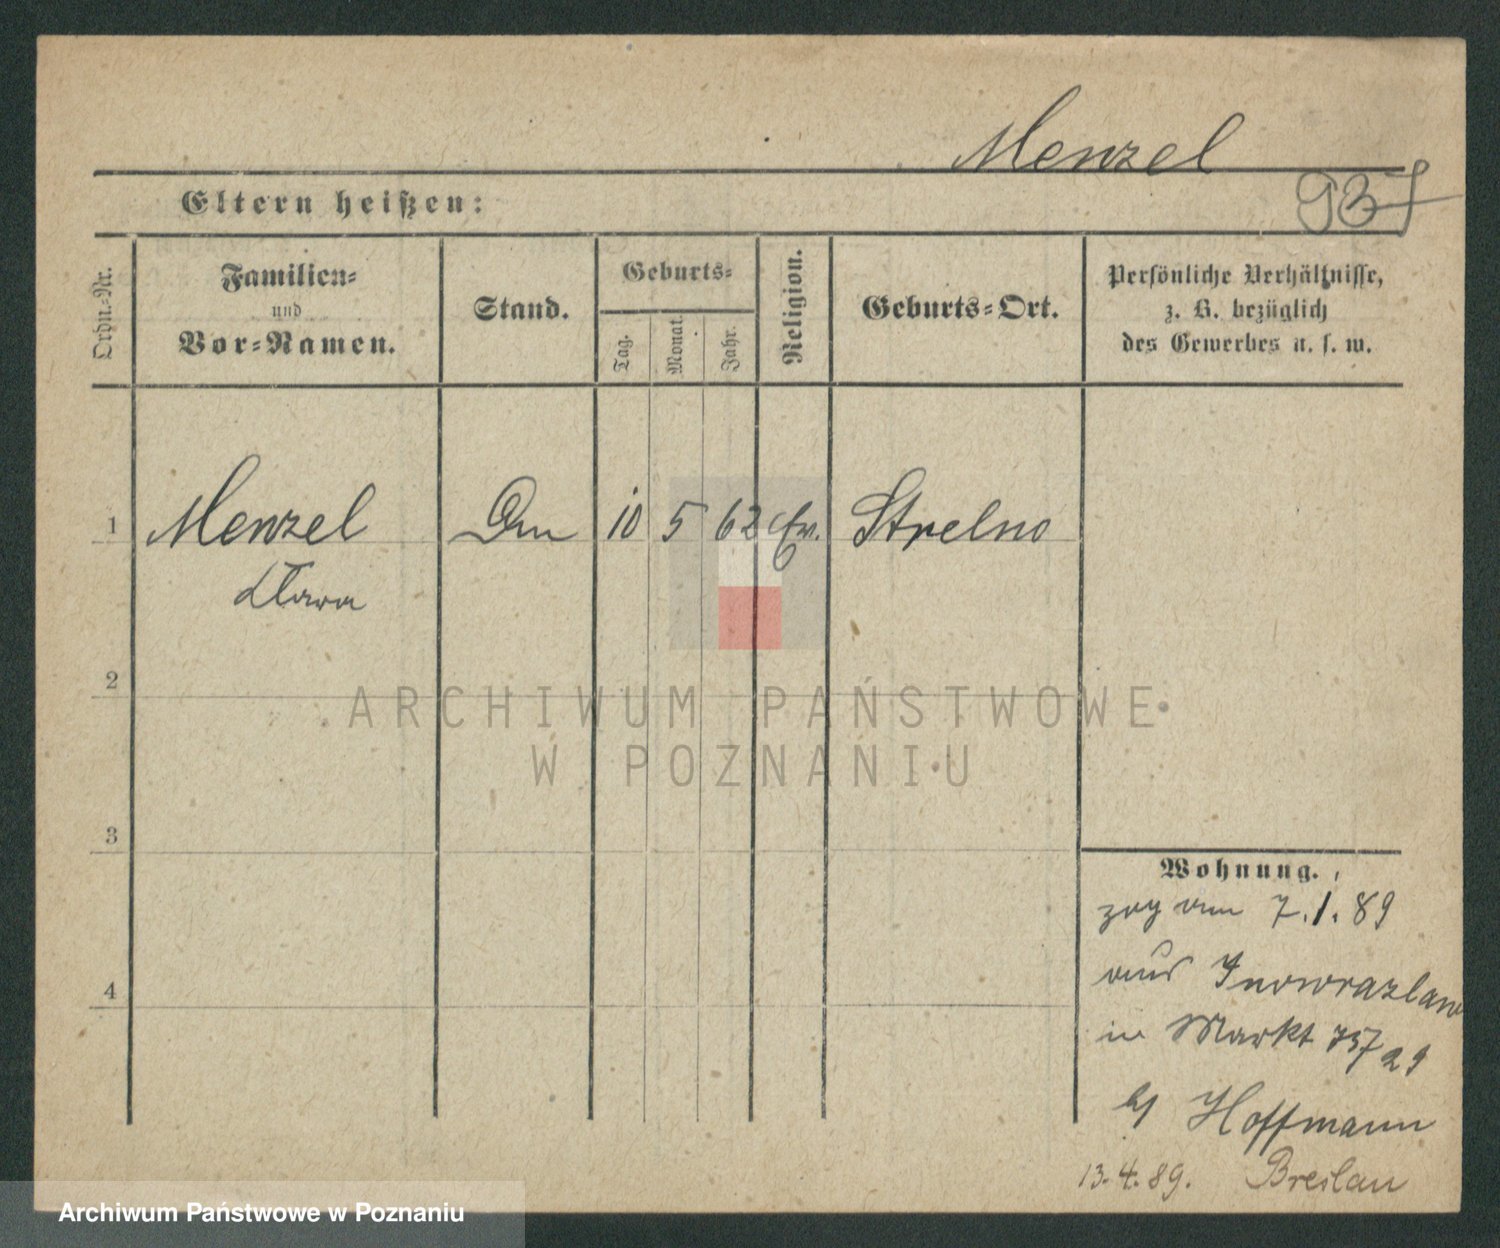 Menzel
Eltern heißen:
937
Ordn.-Nr.
Familien-
und
Vor-Namen.
Stand.
Geburts-
Tag.
Monat.
Jahr.
Religion.
Geburts-Ort.
Persönliche Verhältnisse,
z. B. bezüglich
des Gewerbes u. s. w.
1 Menzel 10 5 62 Ev. Strelno
2
3
4
Wohnung.
zog am 7.1.89
aus Inowrazlaw
in Markt
b/ Hoffmann
13.4.89. Breslau
ARCHIWUM PAŃSTWOWE
W POZNANIU
Archiwum Państwowe w Poznaniu